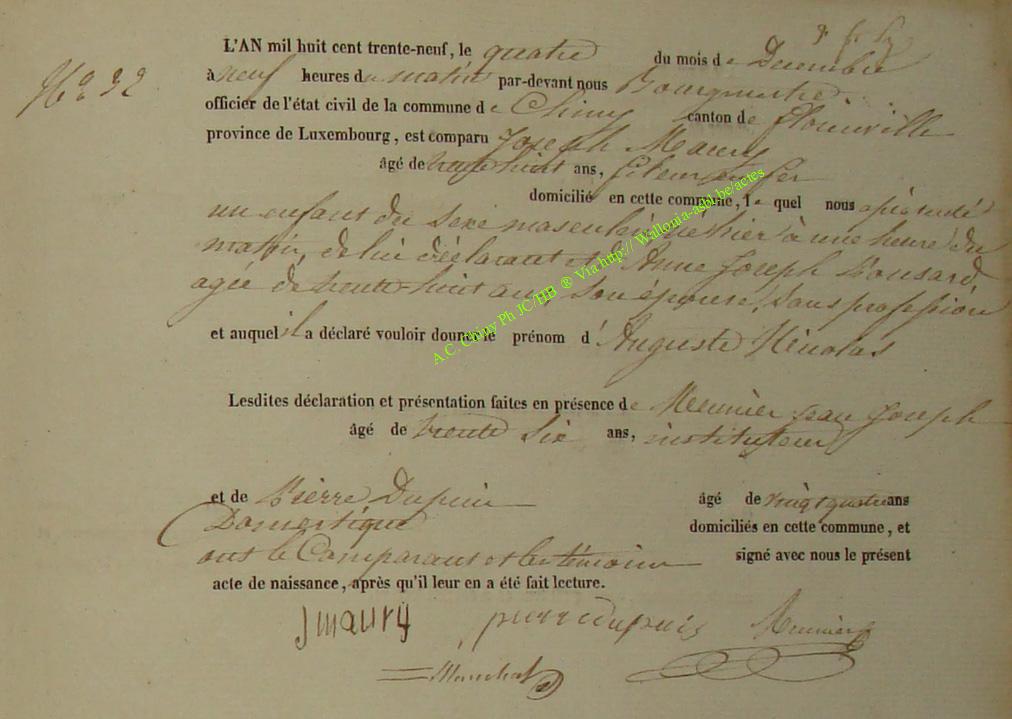 N° 32
L'AN mil huit cent trente-neuf, le quatre du mois de Décembre
à neuf heures du matin par-devant nous Bourgmestre
officier de l'état civil de la commune de Chiny canton de Florenville
province de Luxembourg, est comparu Joseph Maury
âgé de trente huit ans,
domicilié en cette commune, le quel nous a présenté
un enfant du sexe masculin né hier à une heure du
matin, de lui déclarant et de Anne Joseph Ponsard,
agée de trente huit ans son épouse, sans profession
et auquel il a déclaré vouloir donner le prénom d'Auguste Nicolas
Lesdites déclaration et présentation faites en présence de Meunier Jean Joseph
âgé de trente six ans, instituteur
et de Pierre Dupuis âgé de vingt quatre ans
Domestique domiciliés en cette commune, et
ont le Comparant et les témoins signé avec nous le présent
acte de naissance, après qu'il leur en a été fait lecture.
J maury pierre dupuis Meunier
A.C. Chiny Ph JC/HB ® Via http:// Wallonia-asbl.be/actes